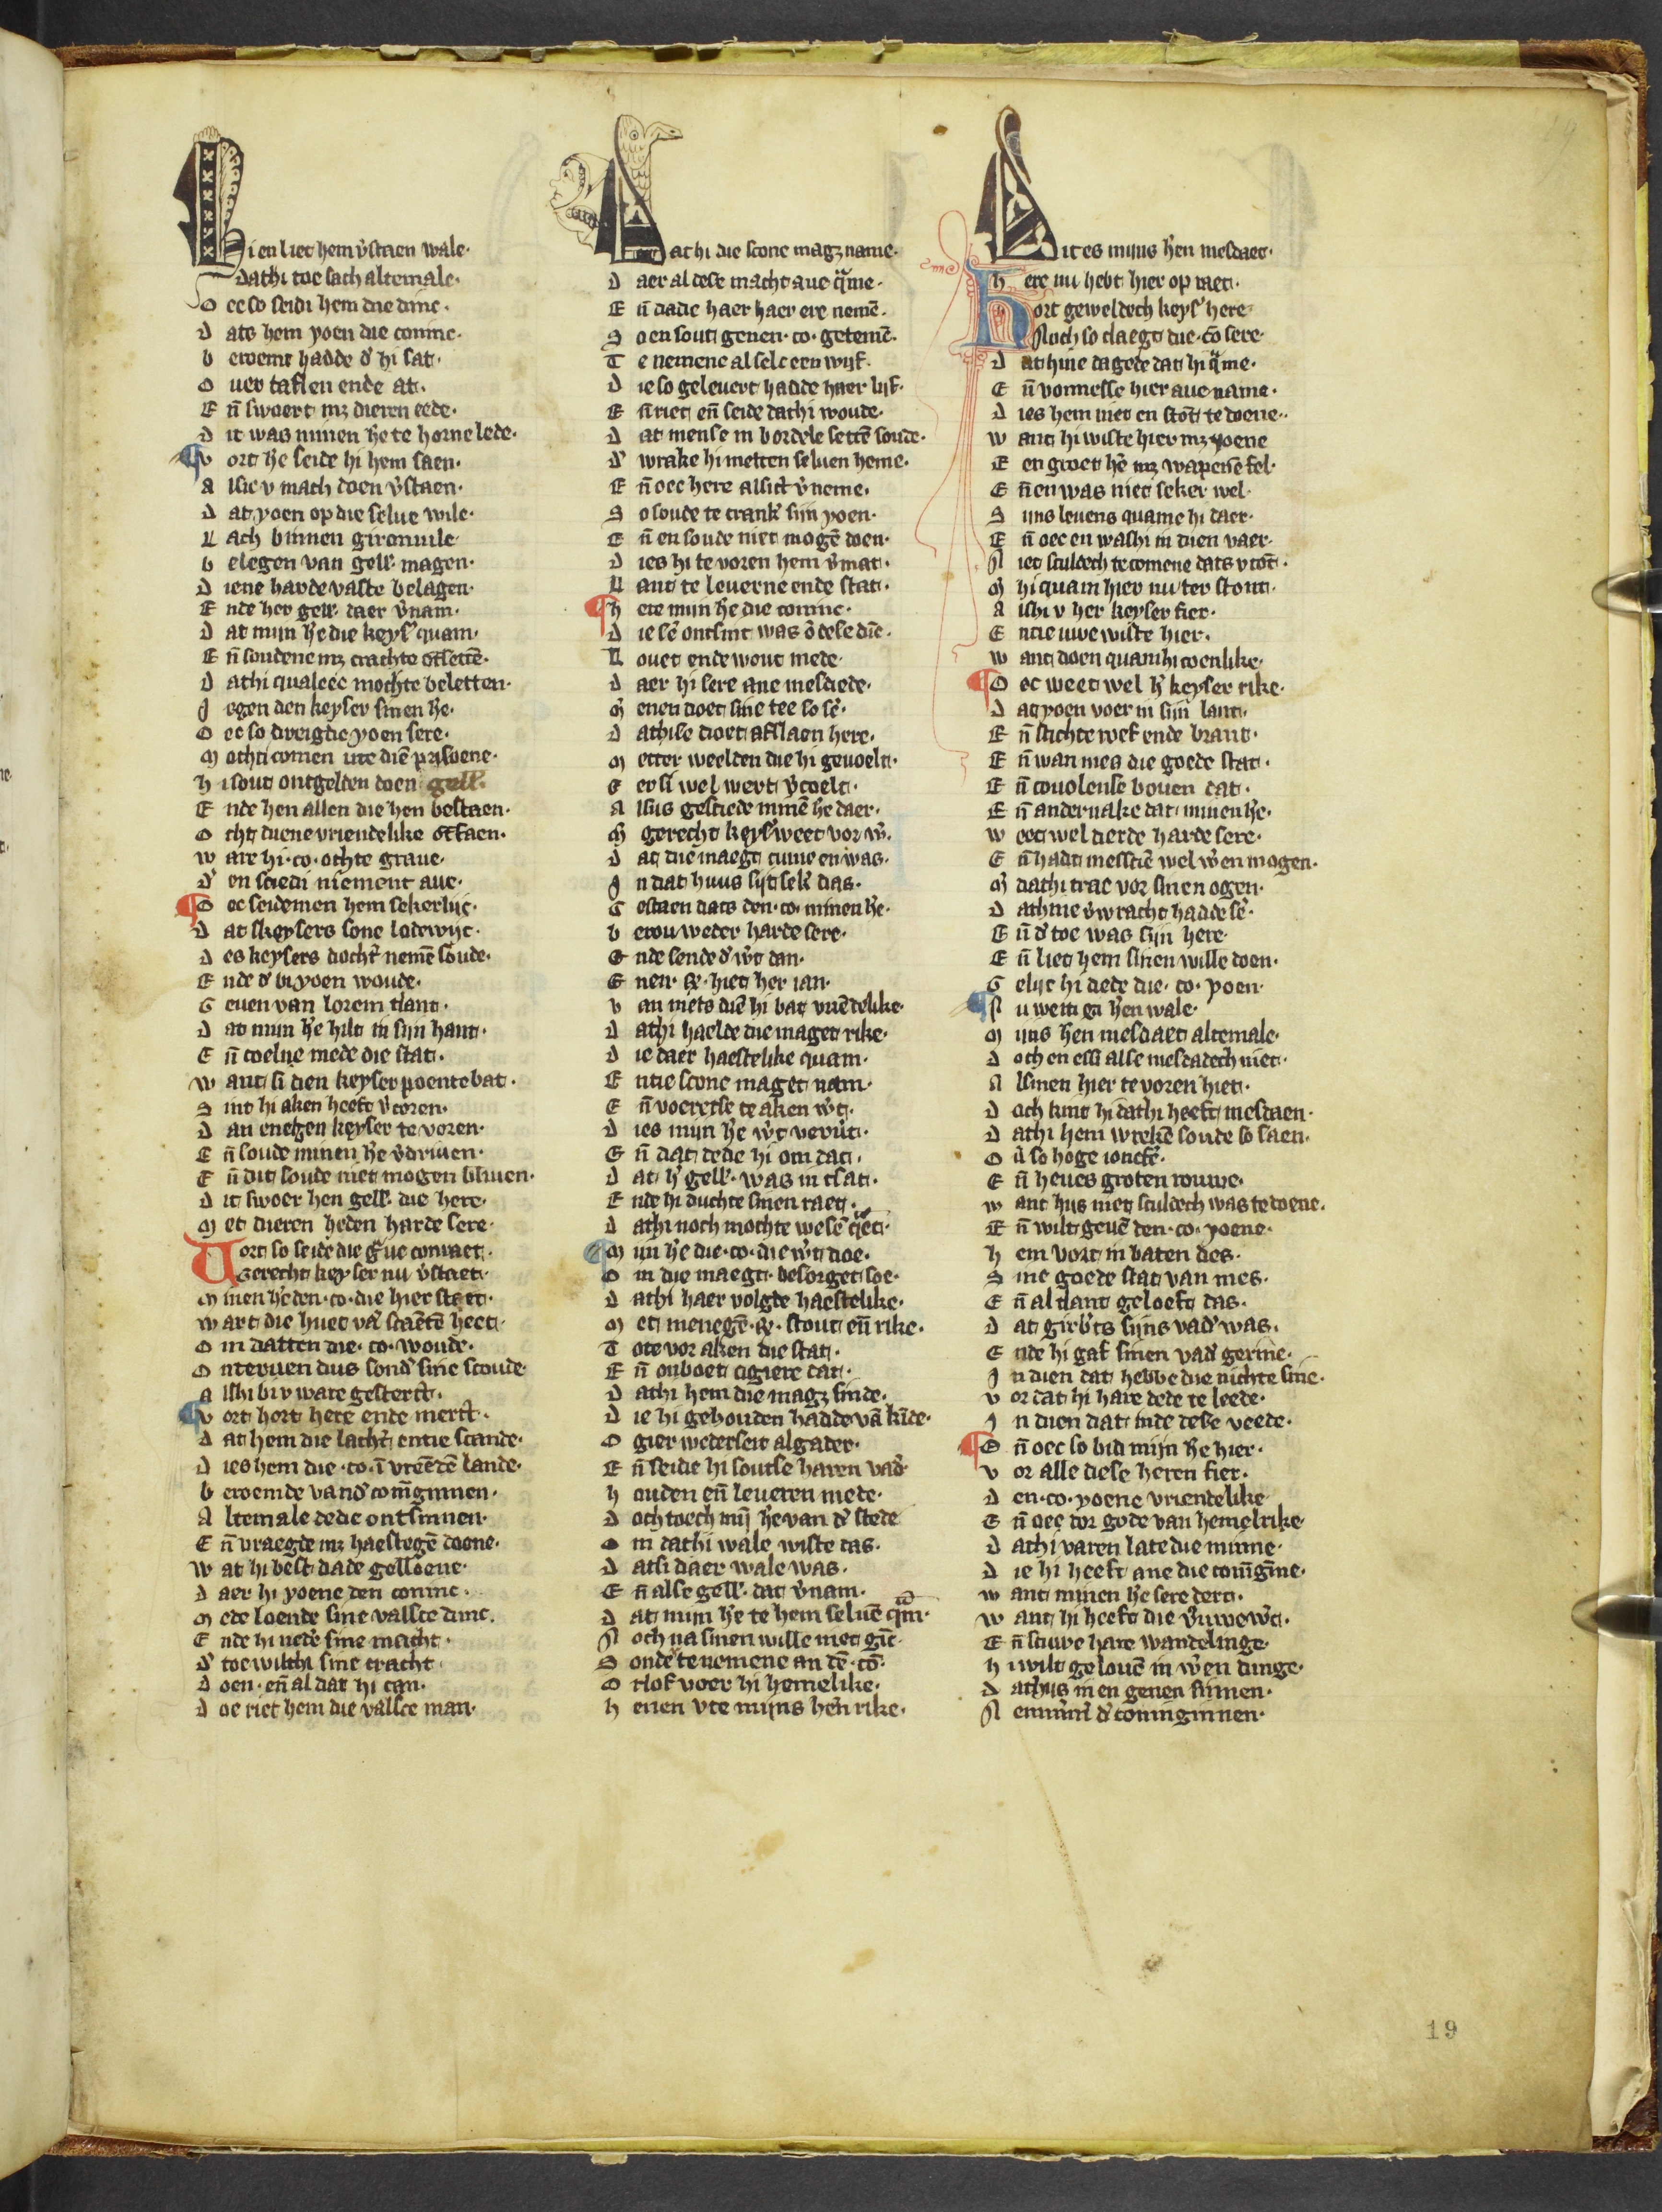 Hi en liet hem v̓staen wale·
Dathi toe sach altemale·
Oec so seidi hem die dinc·
Dats hem yoen die coninc·
beroemt hadde d̓ hi sat·
Ouer taflen ende at·
Eñ swoert mꝫ dieren eede·
Dit was minen h̓e te horne lede·
vort h̓e seide hi hem saen·
Alsic v mach doen v̓staen·
Dat yoen op die selue wile·
Lach binnen gironuile·
belegen van gell̓· magen·
Diene harde vaste belagen·
Ende her gell̓· daer v̓nam·
Dat mijn h̓e die keys̓ quam·
Eñ soudene mꝫ crachte ōtsettē·
Dathi qualeec mochte beletten·
Jegen den keyser sinen h̓e·
Oec so dreigdic yoen sere·
Mochti comen ute diē prisoene·
hi sout ontgelden doen gell̓·
Ende hen allen die hen bestaen·
Ocht duene vriendelike ōtfaen·
ware hi·co·ochte graue·
D̓ en sciedi niement aue·
Oec seidemen hem sekerlijc·
Dat skeysers sone lodewijc·
Des keysers docht̓ nemē soude·
Ende d̓ bi yoen woude·
Geuen van lorein tlant·
Dat mijn h̓e hilt in sijn hant·
Eñ coelne mede die stat·
want si dien keyser poente bat·
Sint hi aken heeft v̓coren·
Dan enegen keyser te voren·
Eñ soude minen h̓e v̓driuen·
Eñ dit soude niet mogen bliuen·
Dit swoer hen gell̓· die here·
Met dieren heden harde sere·
Vort so seide die g̓ue conraet·
Gerecht keyser nu v̓staet·
Minen h̓e den·co·die hier staet·
wart die huet vā scaētē heet·
Om datten die·co·woude·
Onteruen dus sond̓ sine scoude·
Alshi bi v ware gesterct·
vort hort here ende merct·
Dat hem die lacht̓ entie scande·
Dies hem die·co·ī vrēēdē lande·
beroemde vand̓ coniginnen·
Altemale dede ontsinnen·
Eñ vraegde mꝫ haestegē doene·
wat hi best dade gelloene·
Daer hi yoene den coninc·
Mede loende sine valsce dinc·
Ende hi ned̓e sine macht·
D̓ toe wilthi sine cracht
Doen·eñ al dat hi can·
Doe riet hem die valsce man·
Dathi die scone magꝫ name·
Daer al dese macht aue q̓me·
Eñ dade haer haer ere nemē·
Soen sout genen·co·getemē·
Te nemene al selc een wijf·
Die so geleuert hadde haer lijf·
Eñ riet eñ seide dathi woude·
Dat mense in bordele settē soude·
D̓ wrake hi metten seluen heme·
Eñ oec here alsict v̓neme·
So soude te crank̓ sijn yoen·
Eñ en soude niet mogē doen·
Dies hi te voren hem v̓mat·
Lant te leuerne ende stat·
here mijn h̓e die coninc·
Die sē ontsint was ō dese dīc·
Louet ende wout mede·
Daer hi sere ane mesdede·
Menen doet sine tee so sē·
Dathise doet afslaen here·
Metter weelden die hi geuoelt·
eersi wel wert v̓coelt·
Alsus gesciede minē h̓e daer·
Mi gerecht keys̓ weet vor w̓·
Dat die maegt cume en was·
In dat huus sijt sek̓ das·
Gestaen dats den·co·minen h̓e·
berouweder harde sere·
Ende sende d̓ w̓t dan·
Enen·R̓·hiet her ian·
van mēts diē hi bat vriēdelike·
Dathi haelde die maget rike·
Die daer haestelike quam·
Entie scone maget nam·
Eñ voeretse te aken w̓t·
Dies mijn h̓e w̓t veruūt·
Eñ dat dede hi om dat·
Dat h̓ gell̓· was in tsat·
Ende hi duchte sinen raet·
Dathi noch mochte wesē q̓et·
Mijn h̓e die·co·die w̓t doe·
Om die maegt·besorget soe·
Dathi haer volgde haestelike·
Met menegē·R̓·stout eñ rike·
Tote vor aken die stat·
Eñ onboet ogiere dat·
Dathi hem die magꝫ sinde·
Die hi gehouden hadde vā kīde·
Ogier wederseit algader·
Eñ seide hi soutse haren vad̓
houden eñ leueren mede·
Doch toech mij h̓e van d̓ stede
Om dathi wale wiste das·
Datsi daer wale was·
Eñ alse gell̓· dat v̓nam·
Dat mijn h̓e te hem seluē q̓m·
Noch na sinen wille niet gīc·
Sonde te nemene an dē·cō·
Orlof voer hi hemelike·
henen vte mijns hen̓ rike·
Dit es mijns h̓en mesdaet·
here nu hebt hier op raet·
Hort geweldech keys̓ here
Noch so claegt die·cō sere·
Dathine dagede dat hi q̓me·
Eñ vonnesse hier aue name·
Dies hem niet en stōt te doene·
want hi wiste hier mꝫ yoene
Een groet h̓e mꝫ wapensē fel·
Eñ en was niet seker wel·
Sijns leuens quame hi daer·
Eñ oec en washi in dien vaer·
Niet sculdech te comene dats v cōt·
Mi hi quam hier nu ter stont·
Alshi v her keyser fier·
Entie uwe wiste hier·
want doen quamhi coenlike·
Oec weet wel h̓ keyser rike·
Dat yoen voer in sijn lant·
Eñ stichte roef ende brant·
Eñ wan mes die goede stat·
Eñ couolense bouen dat·
Eñ andernake dat minen h̓e·
weet wel derde harde sere·
Eñ hadt messciē wel w̓en mogen·
Mi dathi trac vor sinen ogen·
Dathine v̓wracht hadde sē·
Eñ d̓ toe was sijn here·
Eñ liet hem sinen wille doen·
Gelijc hi dede die·co·yoen·
Nu weit gi h̓en wale·
Mijns hen mesdaet altemale·
Doch en essi alse mesdadech niet·
Alsmen hier te voren hiet·
Doch kint hi dathi heeft mesdaen·
Dathi hem wrekē soude so saen·
Ou̓ so hoge ioncfē·
Eñ heues groten rouwe·
want hijs niet sculdech was te doene·
Eñ wilt geuē den·co·yoene·
hem vort in baten des·
Sine goede stat van mes·
Eñ al tlant geloeft das·
Dat girb̓ts sijns vad̓ was·
Ende hi gaf sinen vad̓ gerine·
In dien dat hebbe die nichte sine·
vor dat hi hare dede te leede·
In dien dat inde dese veede·
Eñ oec so bid mijn h̓e hier·
vor alle dese heren fier·
Den·co·yoene vriendelike
Eñ oec dor gode van hemelrike·
Dathi varen late die minne·
Die hi heeft ane die conīgīne·
want minen h̓e sere dert·
want hi heeft die v̓uwe w̓t·
Eñ scuwe hare wandelinge·
hi wilt gelouē in w̓en dinge·
Dathijs in en genen sinnen·
Nemmer̄ d̓ coninginnen·
19